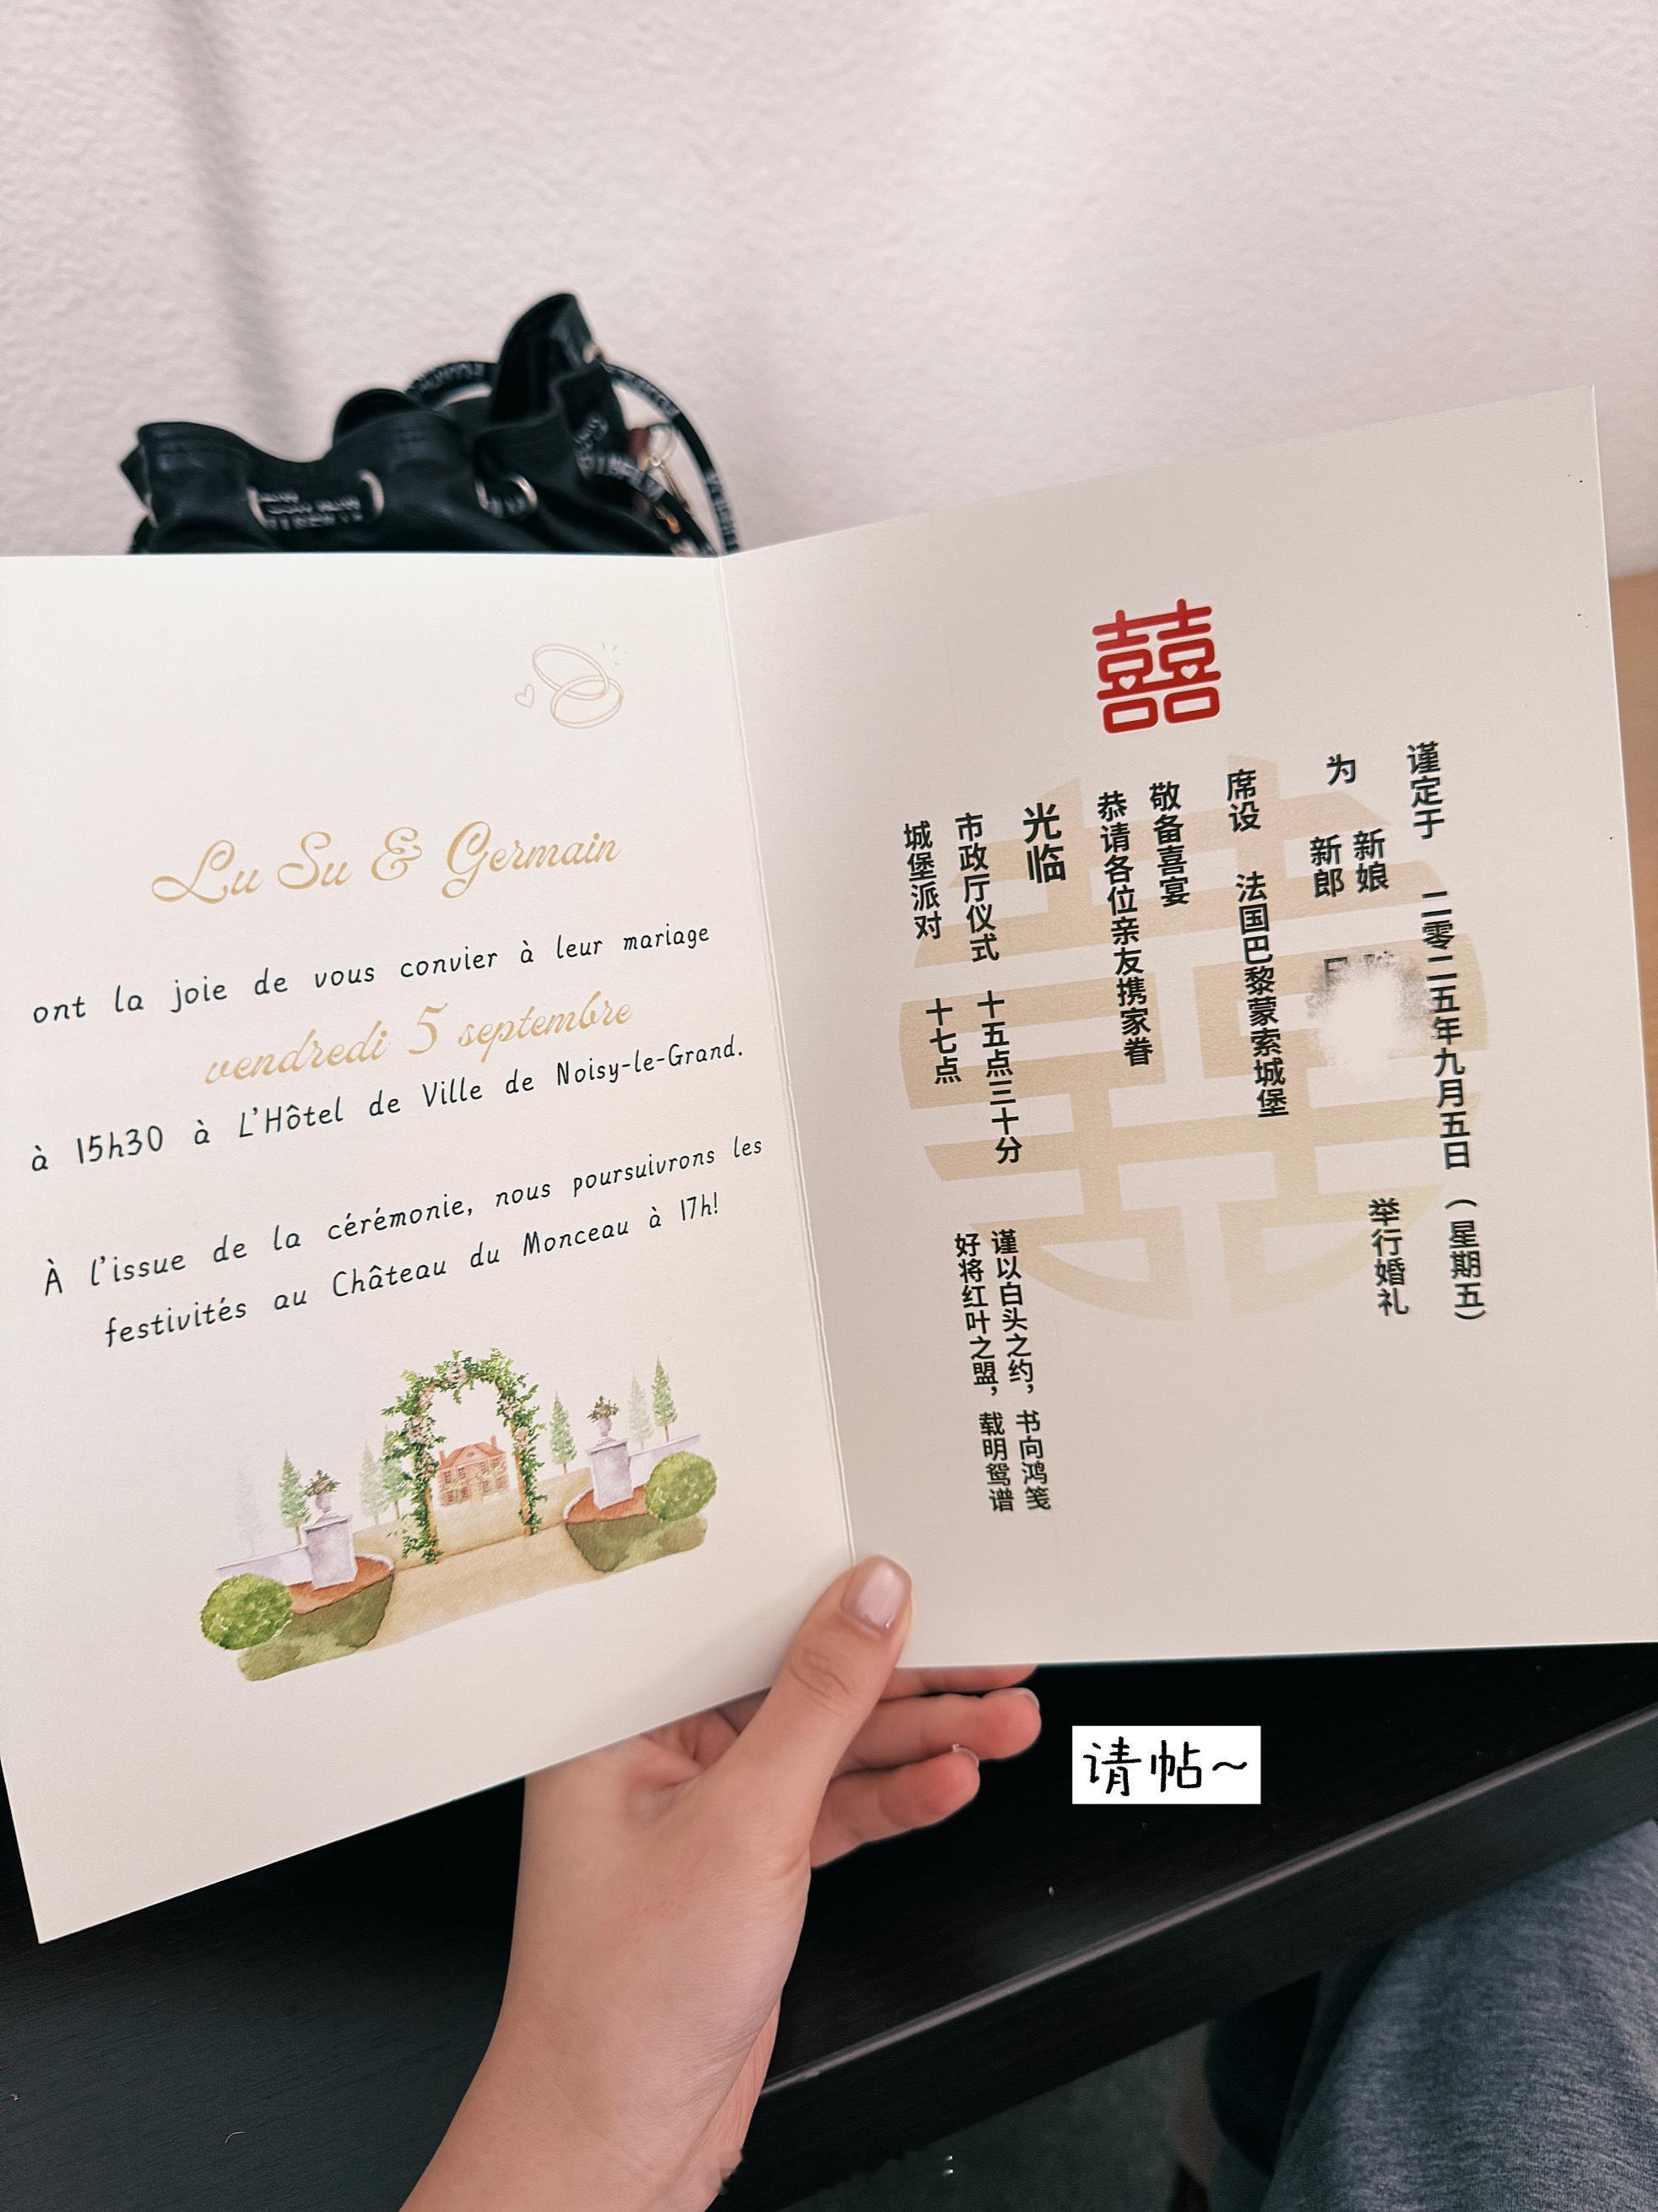 Lu Su & Germain
ont la joie de vous convier à leur mariage
vendredi 5 septembre
à 15h30 à L'Hôtel de Ville de Noisy-le-Grand.
À l'issue de la cérémonie, nous poursuivrons les
festivités au Château du Monceau à 17h!
囍
谨定于 二零二五年九月五日（星期五）
为 新娘
新郎
举行婚礼
席设 法国巴黎蒙索城堡
敬备喜宴
恭请各位亲友携家眷
光临
市政厅仪式 十五点三十分
城堡派对 十七点
谨以白头之约，书向鸿笺
好将红叶之盟，载明鸳谱
请帖~